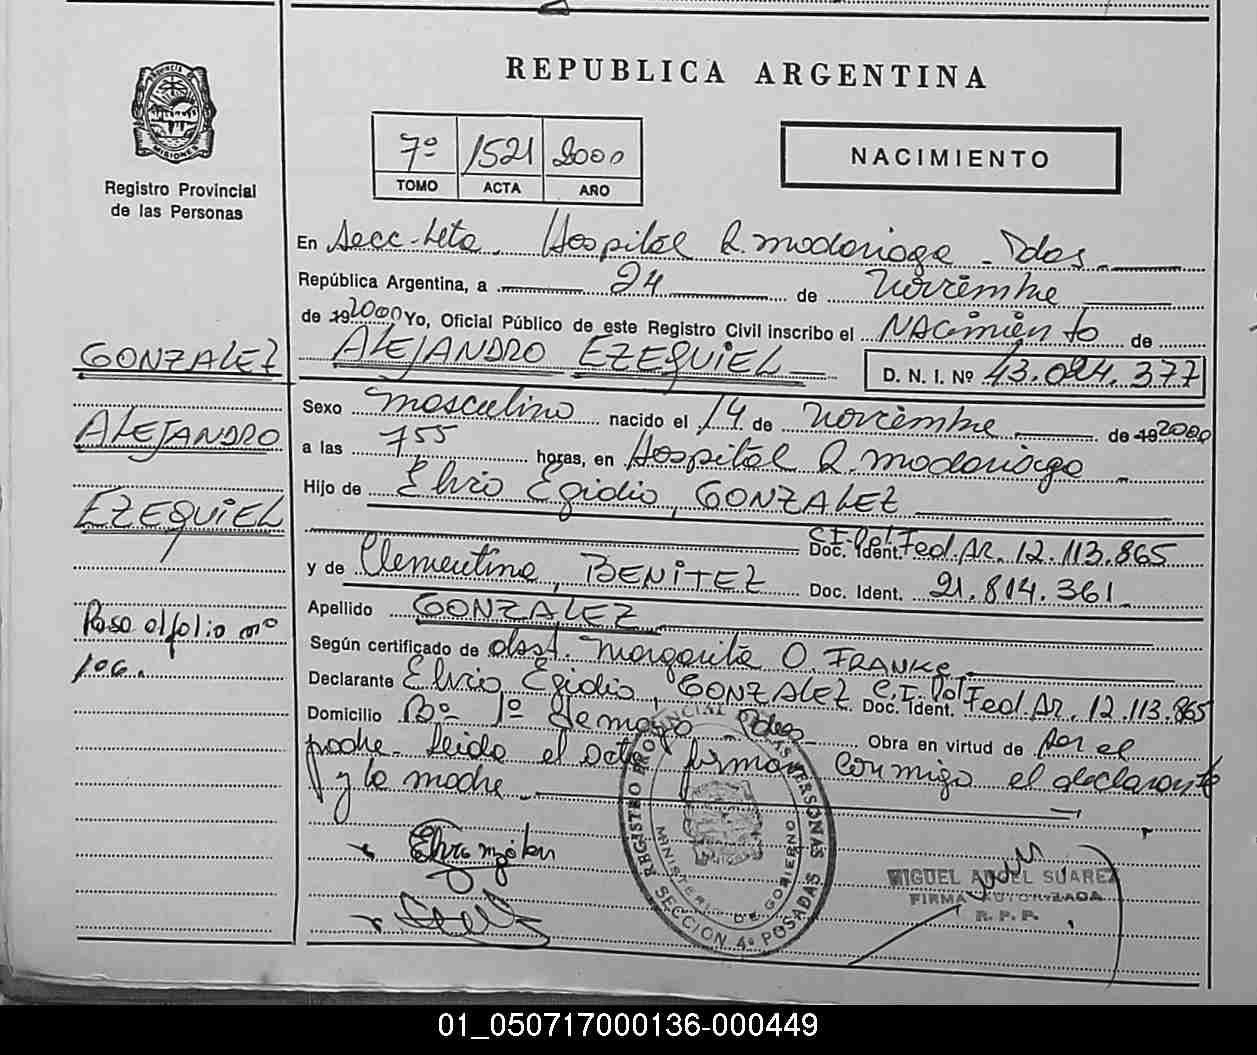 REPUBLICA ARGENTINA
PROVINCIA DE MISIONES
Registro Provincial
de las Personas
7º 1521 2000
TOMO ACTA AÑO
NACIMIENTO
En Secc. 4ta. Hospital R. Madariaga - Pdas.
República Argentina, a 24 de Noviembre
de 192000 Yo, Oficial Público de este Registro Civil inscribo el NAcimiento de
ALEJANDRO EZEQUIEL D. N. I. Nº 43.024.377
Sexo masculino nacido el 14 de noviembre de 192000
a las 7 55 horas, en Hospital R. Madariaga
Hijo de Elvio Egidio, GONZALEZ
Doc. Ident. C.I. Pol. Fed. Ar. 12.113.865
y de Clementina, BENiTEZ Doc. Ident. 21.814.361
Apellido GONZALEZ
Según certificado de obst. Margarita O. FRANKE
Declarante Elvio Egidio, GONZALEZ Doc. Ident. C.I. Pol Fed. Ar. 12.113.865
Domicilio Bº 1º de mayo - Pdas Obra en virtud de ser el
padre. Leida el acta firman conmigo el declarante
y la madre
GONZALEZ
ALEJANDRO
EZEQUIEL
Paso al folio nº
106.
REGISTRO PROVINCIAL DE LAS PERSONAS
MINISTERIO DE GOBIERNO
SECCION 4º POSADAS
MIGUEL ANGEL SUAREZ
FIRMA AUTORIZADA
R. P. P.
01_050717000136-000449